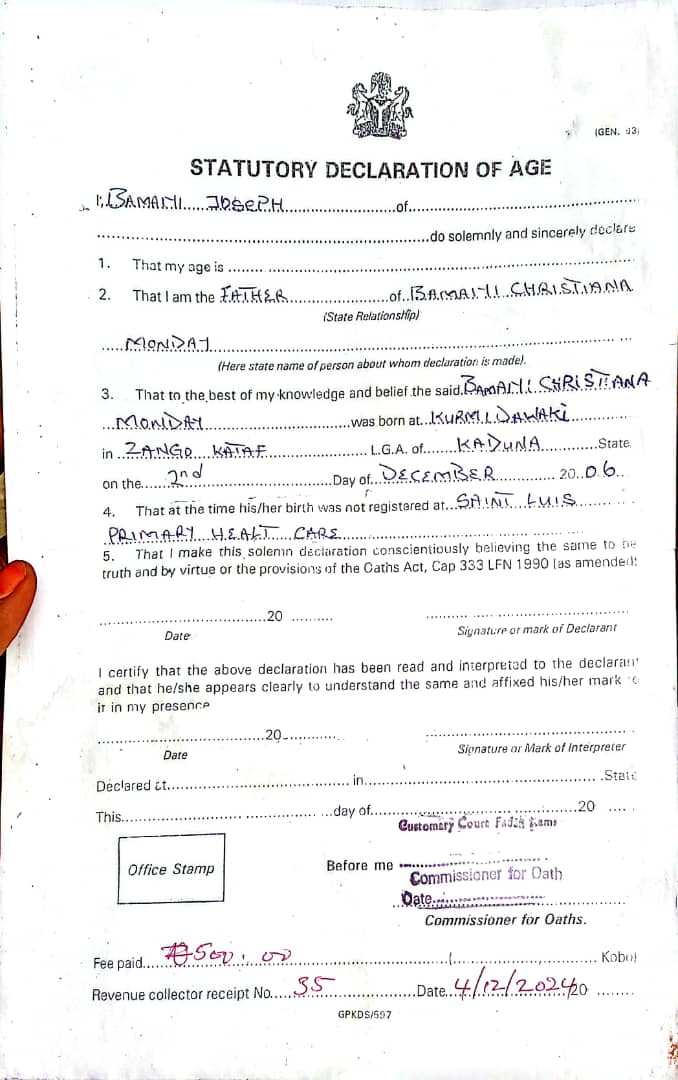 (GEN. 93)
STATUTORY DECLARATION OF AGE
I, BAMAIYI JOSEPH of
do solemnly and sincerely declare
1. That my age is
2. That I am the FATHER of BAMAIYI CHRISTIANA
(State Relationship)
MONDAY
(Here state name of person about whom declaration is made).
3. That to the best of my knowledge and belief the said BAMAIYI CHRISTIANA
MONDAY was born at KURMI DAWAKI
in ZANGO KATAF L.G.A. of KADUNA State
on the 2nd Day of DECEMBER 2006
4. That at the time his/her birth was not registered at SAINT LUIS
PRIMARY HEALT CARE
5. That I make this solemn declaration conscientiously believing the same to be
truth and by virtue or the provisions of the Oaths Act, Cap 333 LFN 1990 (as amended)
20
Date Signature or mark of Declarant
I certify that the above declaration has been read and interpreted to the declarant
and that he/she appears clearly to understand the same and affixed his/her mark to
it in my presence
20
Date Signature or Mark of Interpreter
Declared at in State
This day of 20
Customary Court
Office Stamp
Before me
Commissioner for Oath
Date
Commissioner for Oaths.
Fee paid ₦500.00 ( Kobo)
Revenue collector receipt No. 35 Date 4/12/2024 20
GPKDS/597